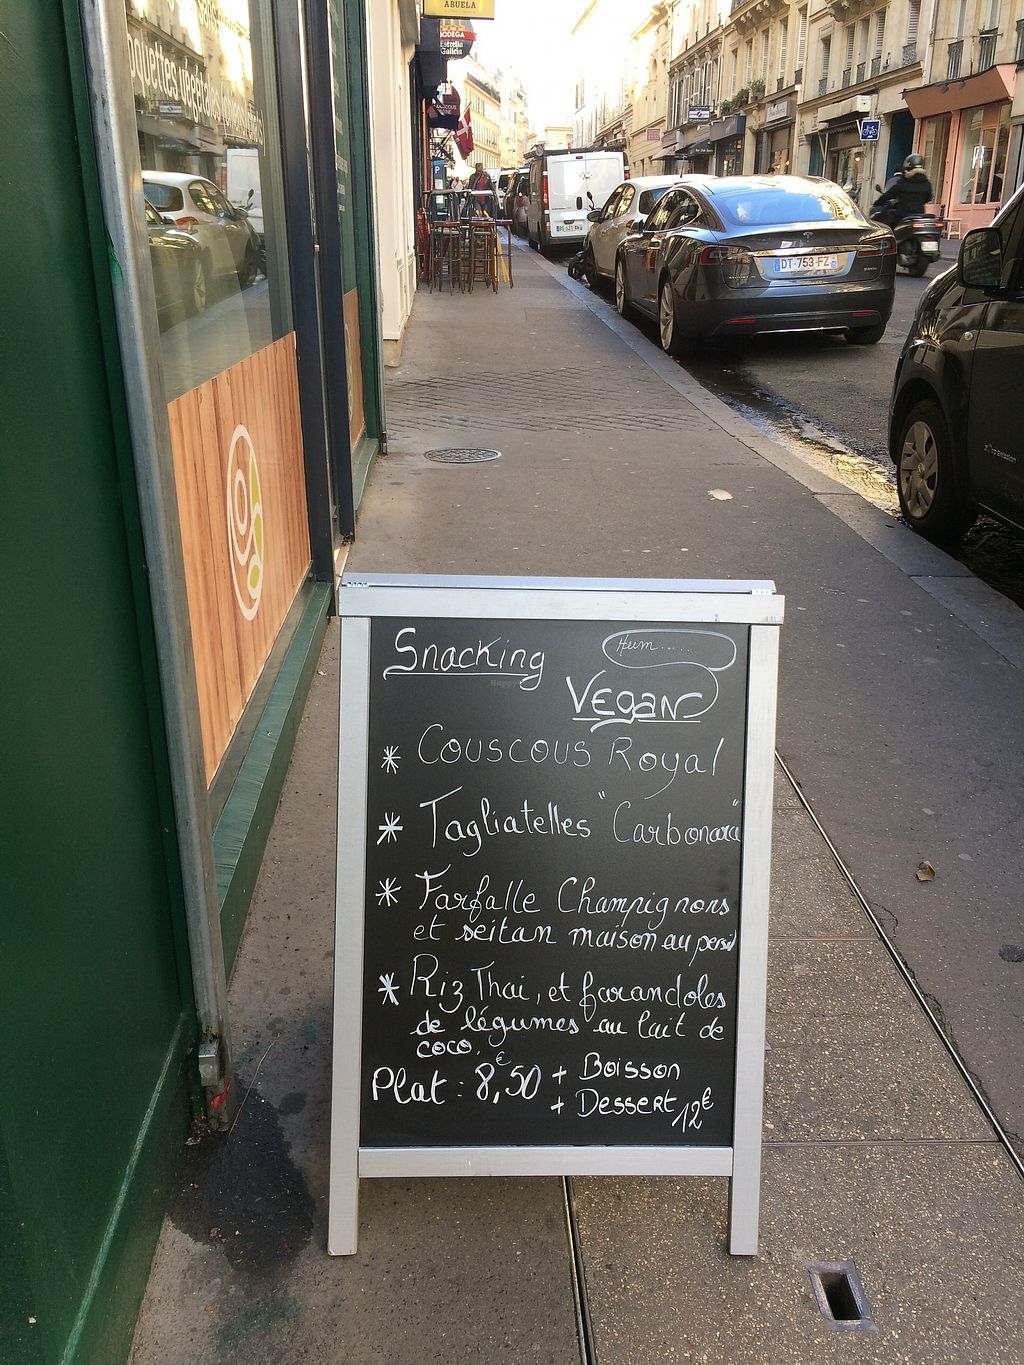 ABUELA
BODEGA
Estrella
Galicia
DT-753-FZ
Snacking
Hum.....
Vegan
* Couscous Royal
* Tagliatelles "Carbonara"
* Farfalle Champignons
et seitan maison au persil
* Riz Thaï, et farandoles
de légumes au lait de
coco.
Plat : 8,50€ + Boisson
+ Dessert 12€